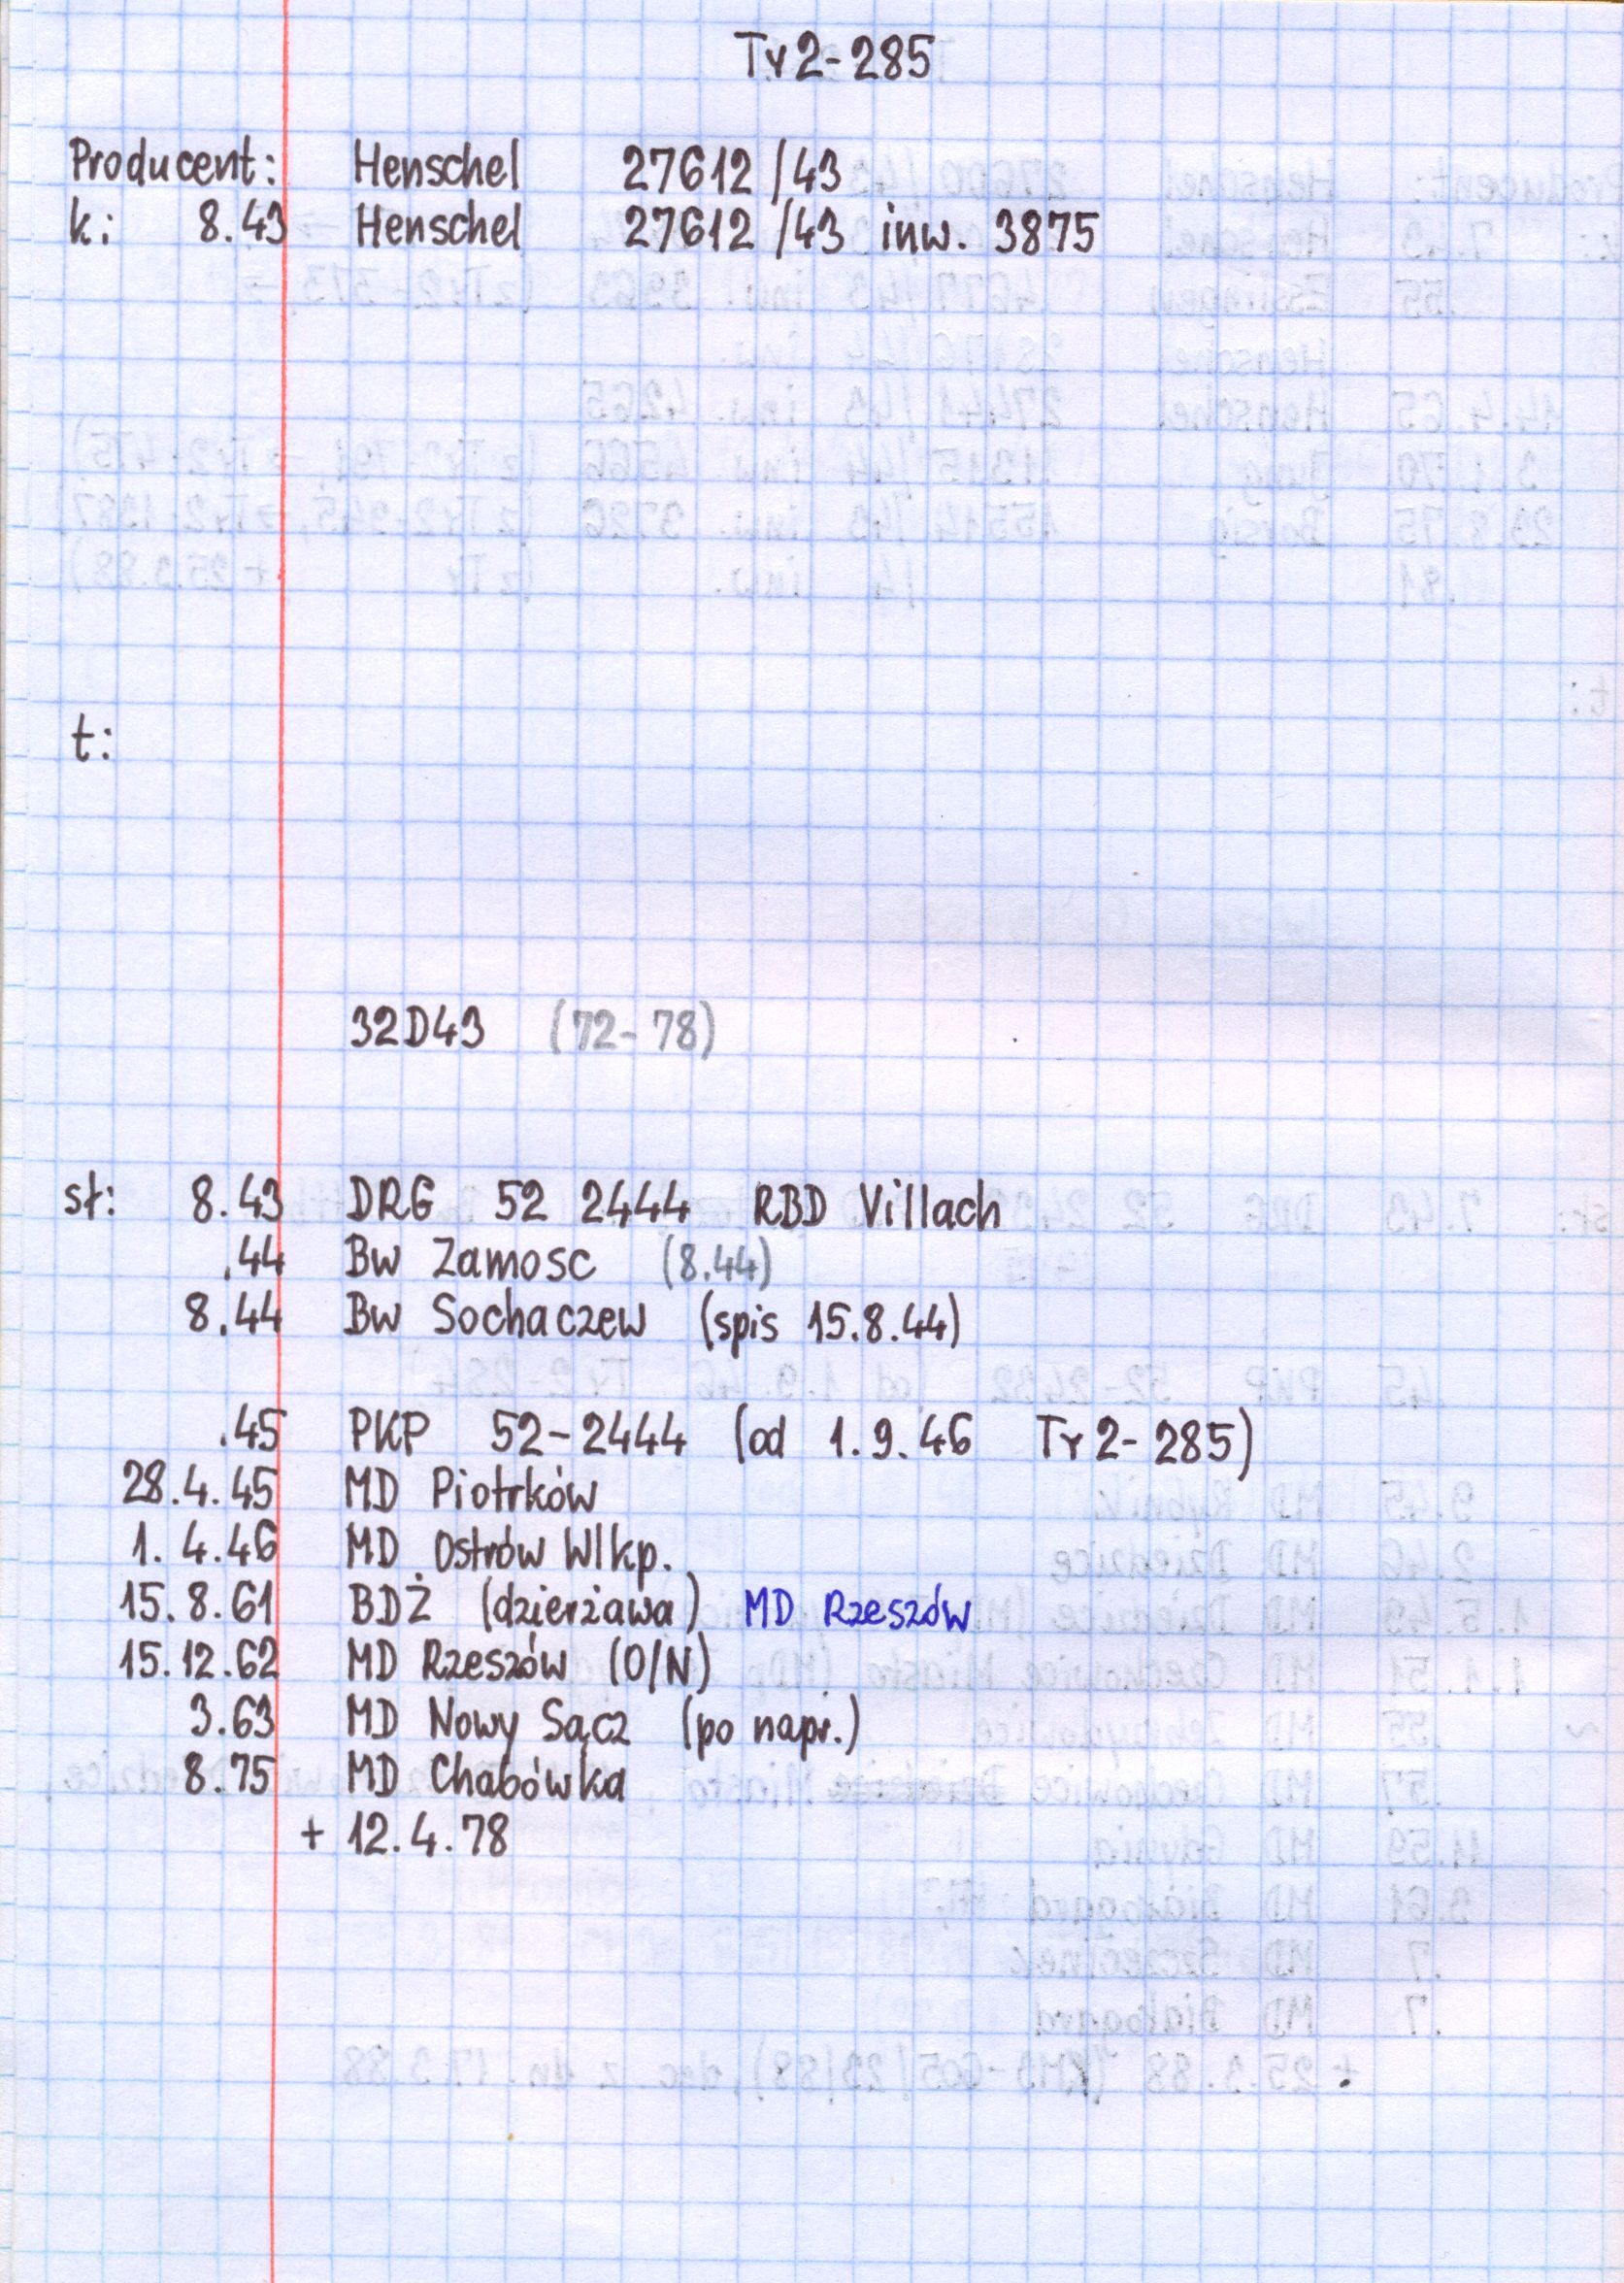 Ty2-285
Producent: Henschel 27612/43
k: 8.43 Henschel 27612/43 inw. 3875
t:
32D43 (72-78)
sł: 8.43 DRG 52 2444 RBD Villach
.44 Bw Zamosc (8.44)
8.44 Bw Sochaczew (spis 15.8.44)
.45 PKP 52-2444 (od 1.9.46 Ty2-285)
28.4.45 MD Piotrków
1.4.46 MD Ostrów Wlkp.
15.8.61 BDŻ (dzierżawa) MD Rzeszów
15.12.62 MD Rzeszów (O/N)
3.63 MD Nowy Sącz (po napr.)
8.75 MD Chabówka
+ 12.4.78